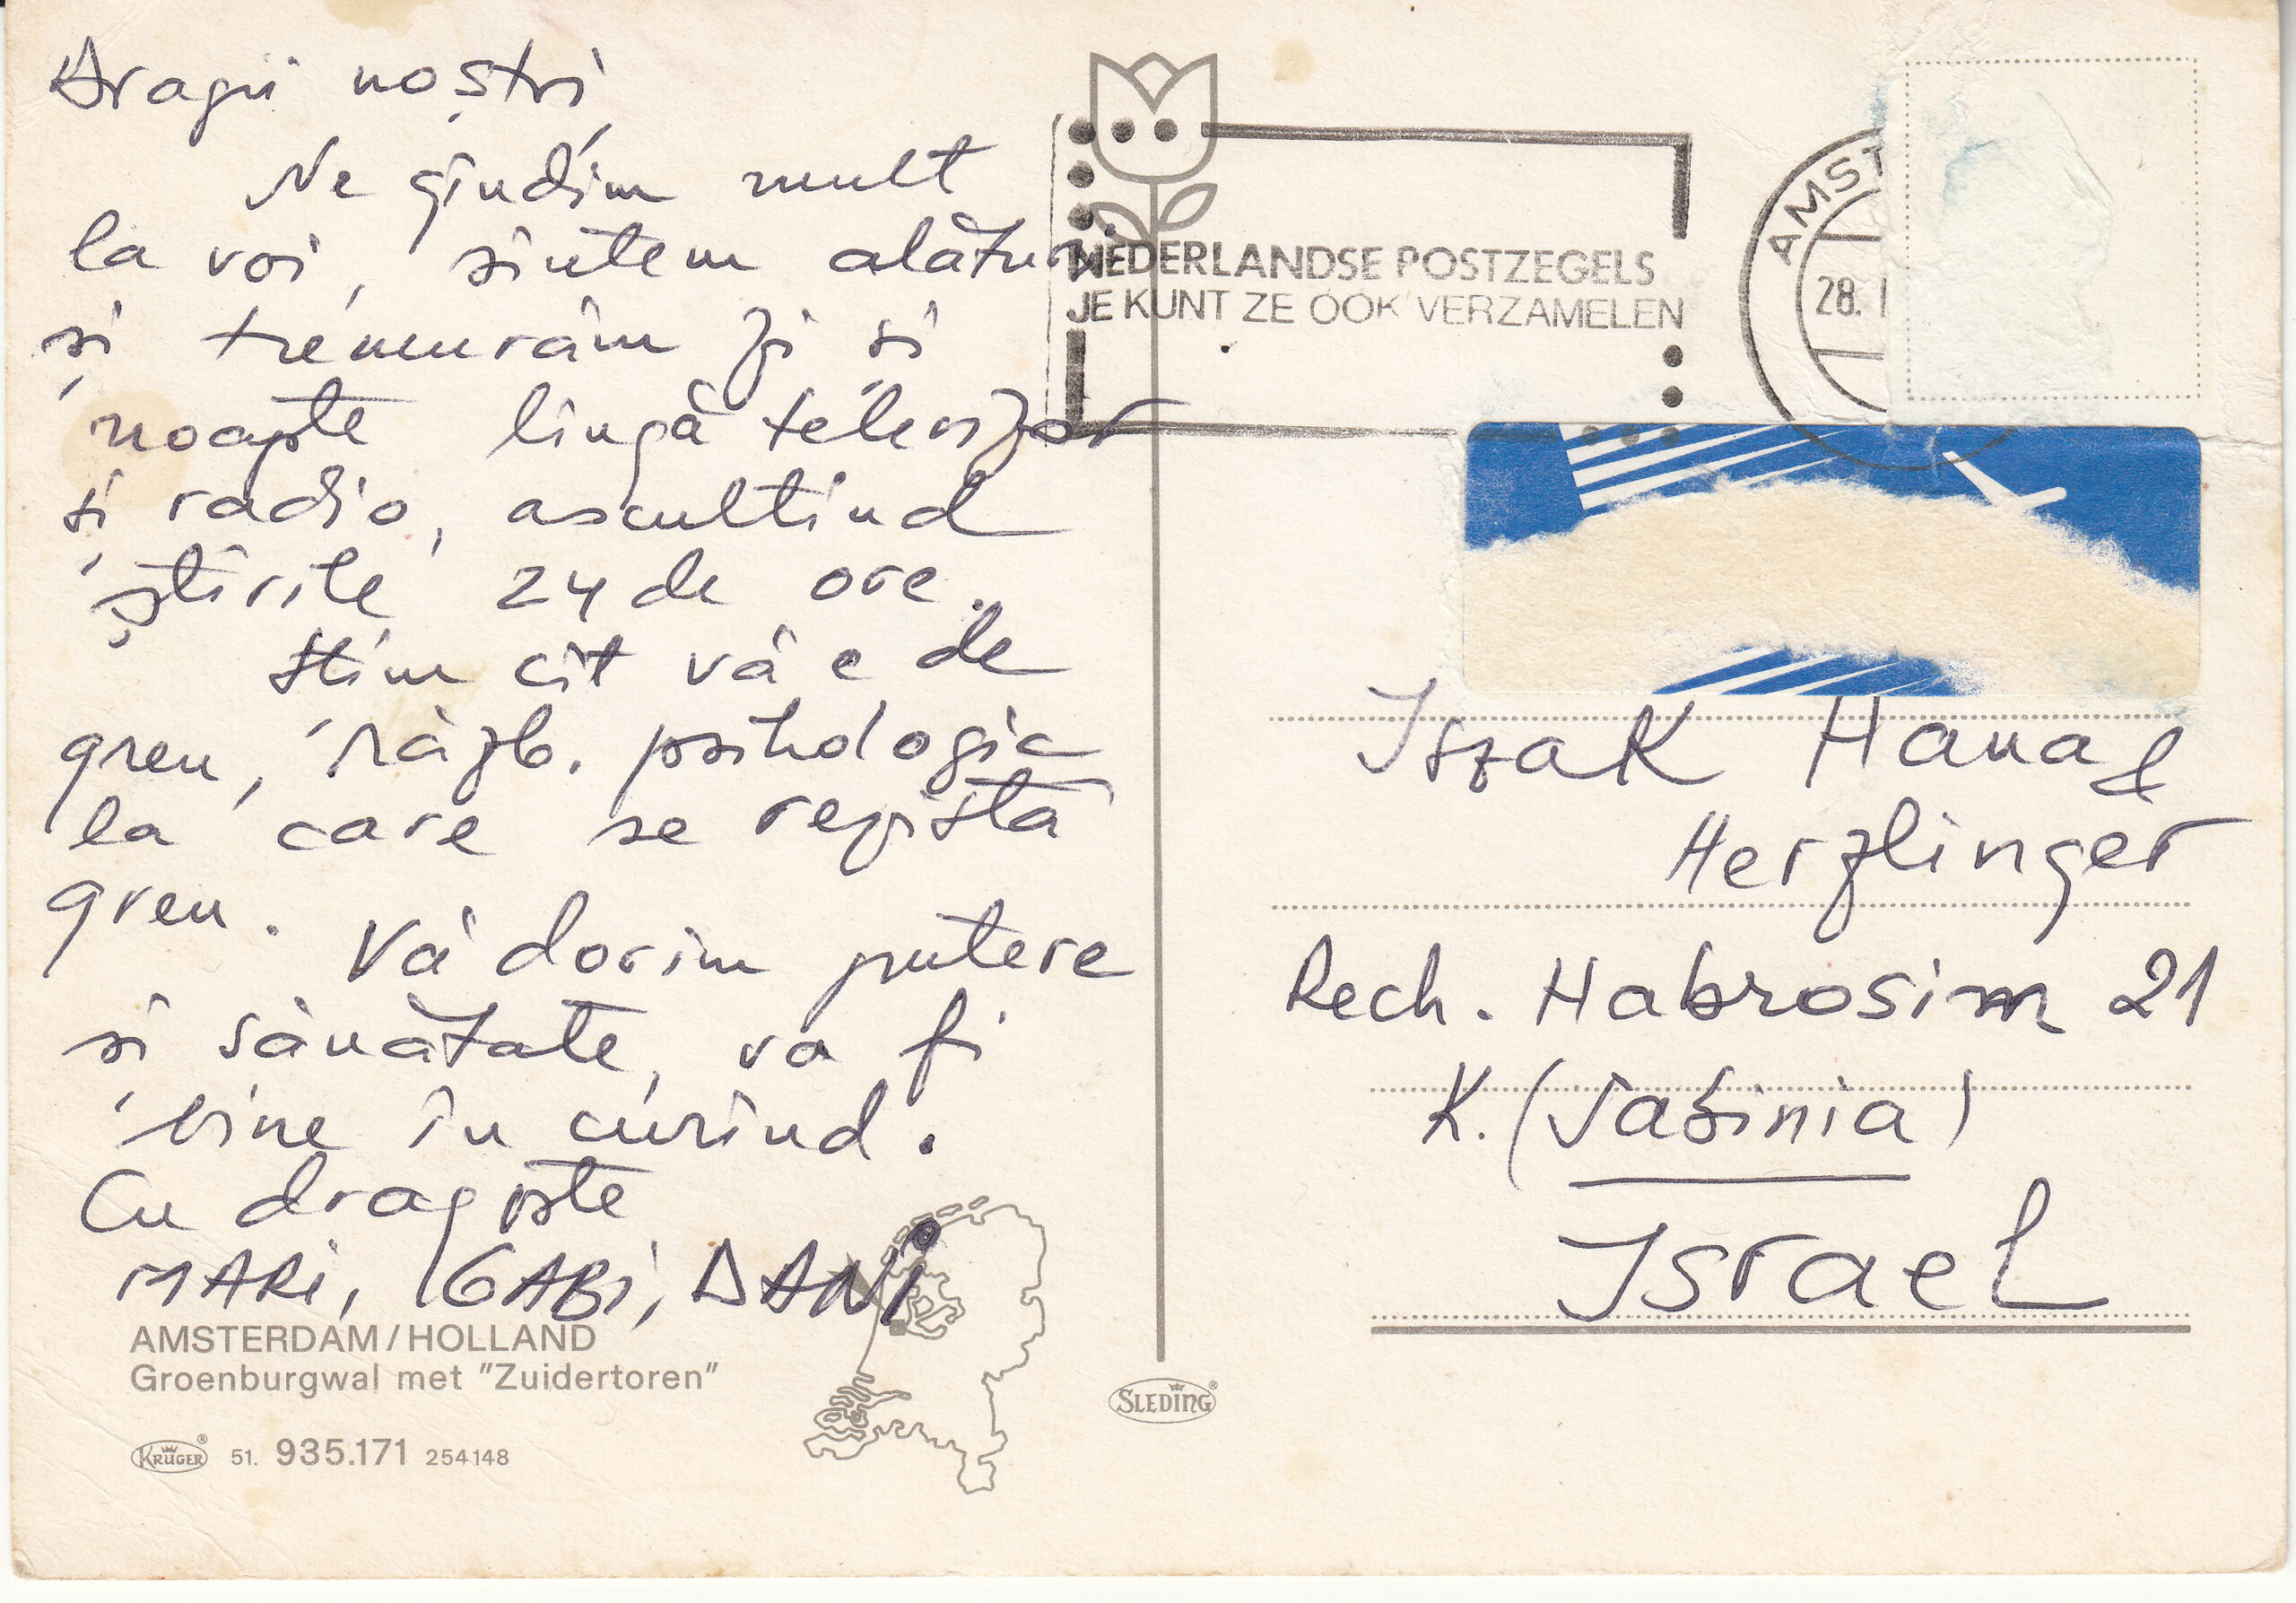 Dragii noștri,
Ne gîndim mult
la voi, sîntem alături
și tremurăm zi și
noapte lîngă televizor
și radio, ascultînd
știrile 24 de ore.
Știm cît vă e de
greu, războ. psihologic
la care se rezistă
greu. Vă dorim putere
și sănătate, va fi
bine în curînd.
Cu dragoste
MARi, GABi, DANi
AMSTERDAM/HOLLAND
Groenburgwal met "Zuidertoren"
KRÜGER 51. 935.171 254148
SLEDING
NEDERLANDSE POSTZEGELS
JE KUNT ZE OOK VERZAMELEN
AMST
28. I
Iszak Hana &
Herzlinger
Rech. Habrosim 21
K. (Sabinia)
Israel